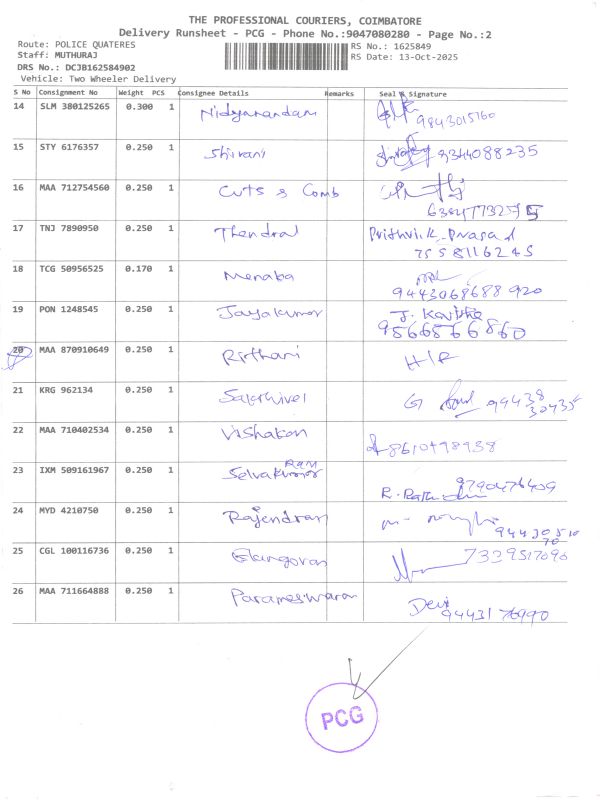 THE PROFESSIONAL COURIERS, COIMBATORE
Delivery Runsheet - PCG - Phone No.:9047080280 - Page No.:2
Route: POLICE QUATERES
RS No.: 1625849
Staff: MUTHURAJ
RS Date: 13-Oct-2025
DRS No.: DCJB162584902
Vehicle: Two Wheeler Delivery
S No Consignment No Weight PCS Consignee Details Remarks Seal & Signature
14 SLM 380125265 0.300 1 Nidyanandam
9843015160
15 STY 6176357 0.250 1 Shivani 9344088235
16 MAA 712754560 0.250 1 Cuts & Comb
17 TNJ 7890950 0.250 1 Thendral Prithvik Prasad
7558116245
18 TCG 50956525 0.170 1 Menaba
9443068688 920
19 PON 1248545 0.250 1 Jayakumar J. Kavitha
9566566860
20 MAA 870910649 0.250 1 Rithani H/R
21 KRG 962134 0.250 1 Sakthivel G 99438
30435
22 MAA 710402534 0.250 1 Vishakan 8610498938
23 IXM 509161967 0.250 1 Selvakumar Ram
9790476409
R.
24 MYD 4210750 0.250 1 Rajendran
9443070510
25 CGL 100116736 0.250 1 Elangovan 7339517090
26 MAA 711664888 0.250 1 Parameswaran Devi
9443176990
PCG